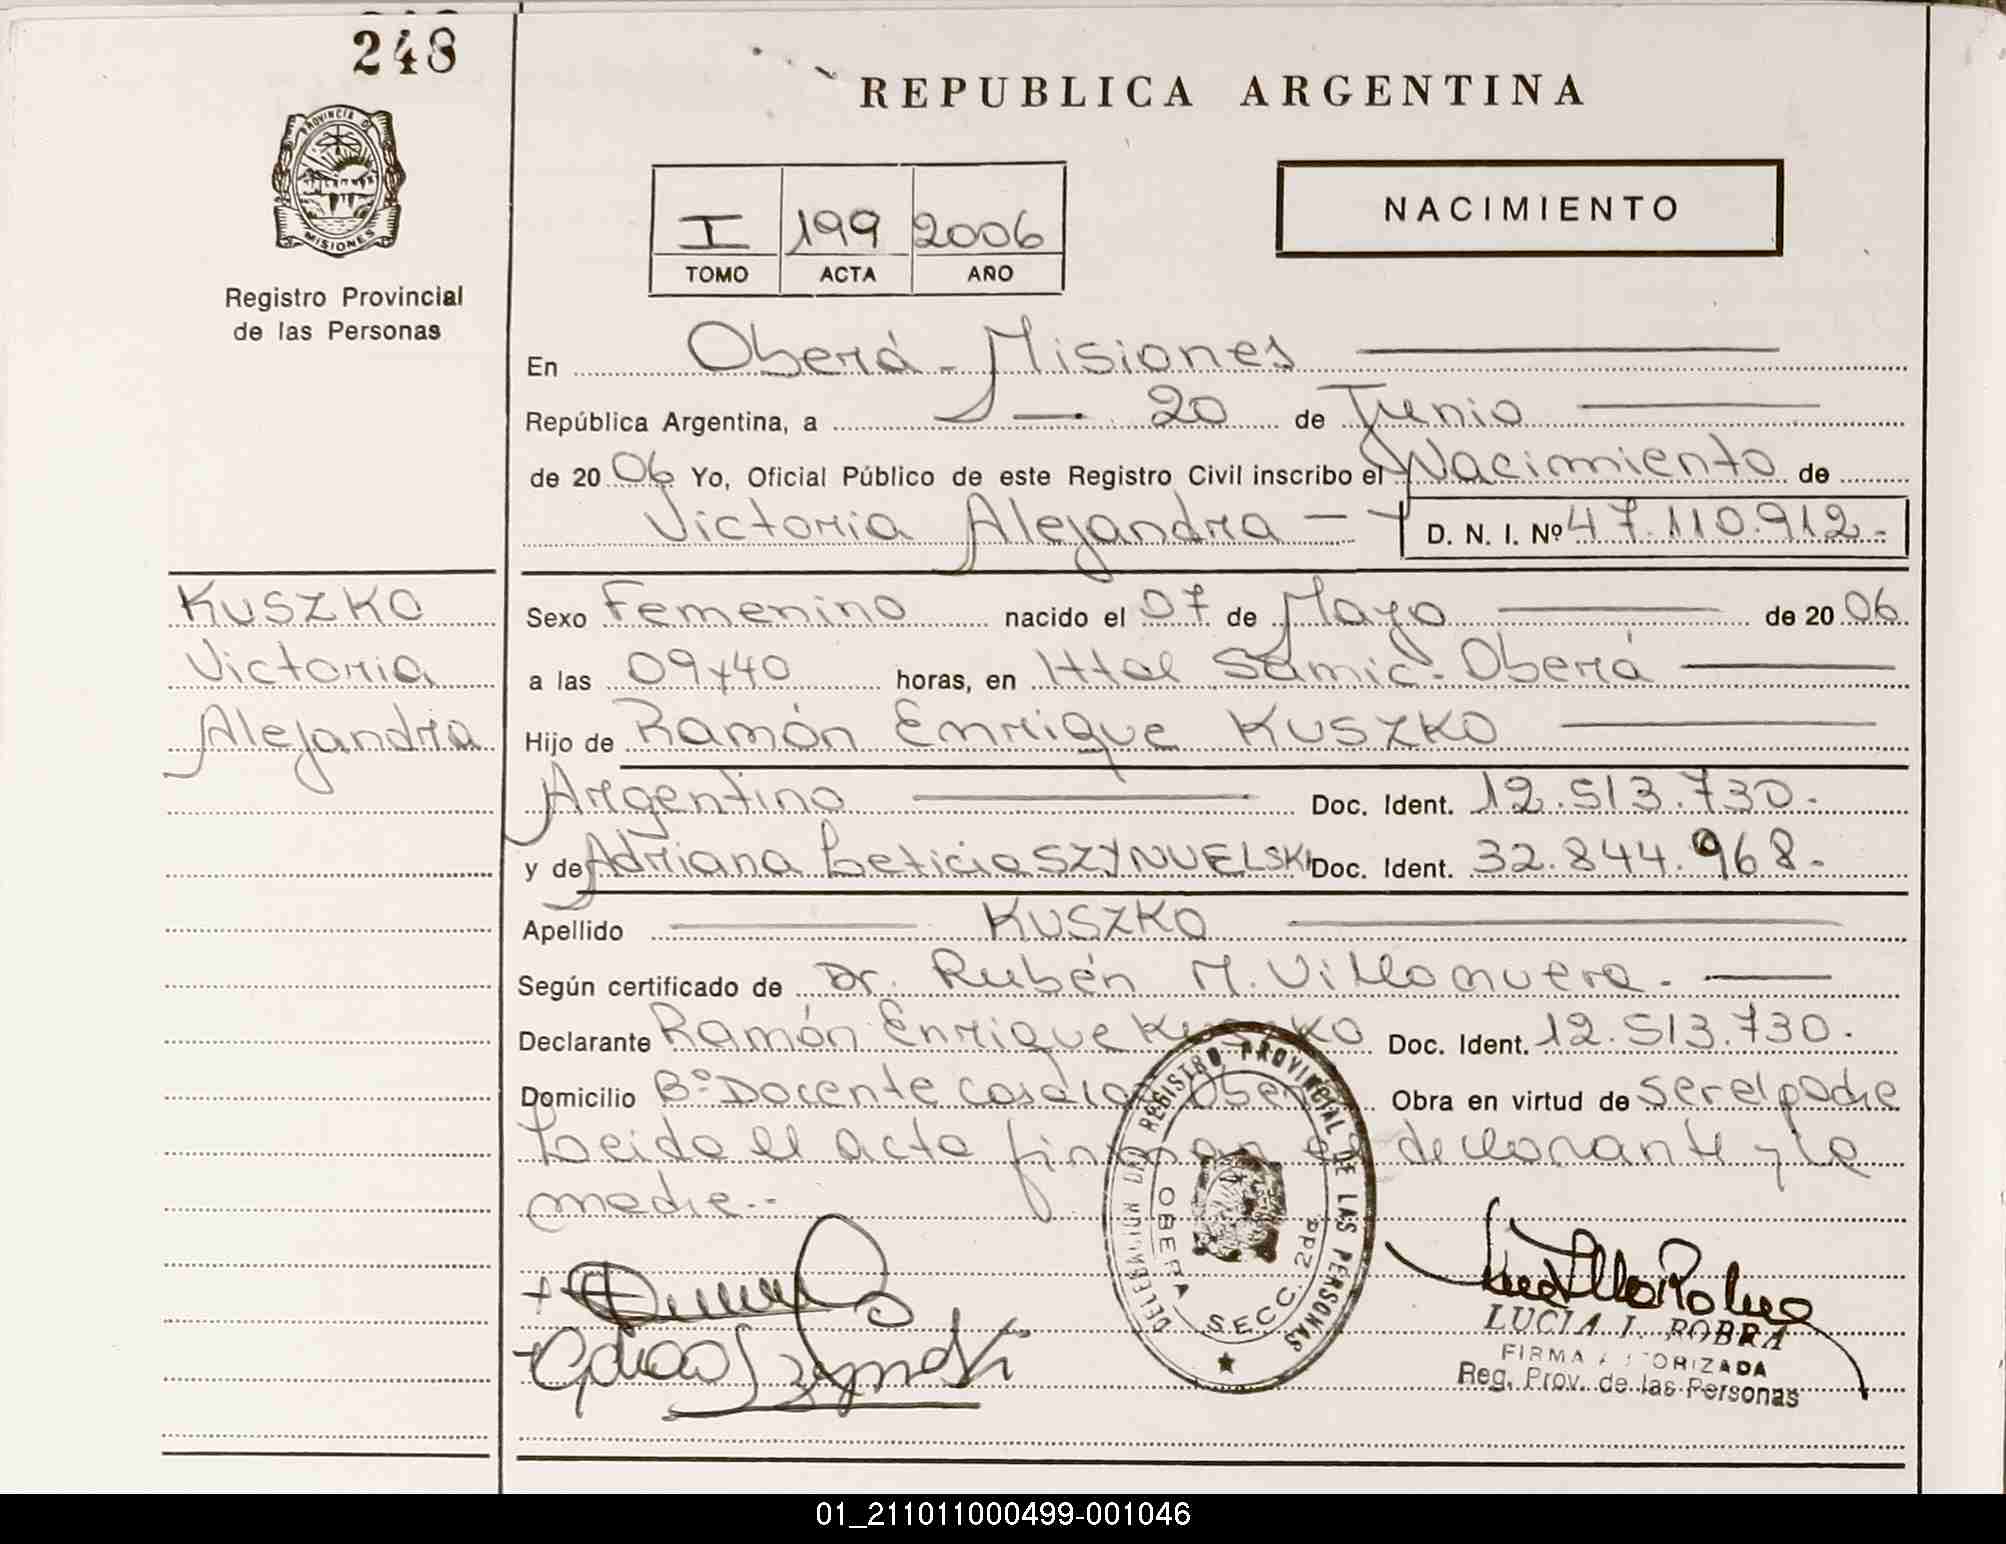 248
PROVINCIA DE
MISIONES
Registro Provincial
de las Personas
REPUBLICA ARGENTINA
I 199 2006
TOMO ACTA AÑO
NACIMIENTO
En Oberá - Misiones
República Argentina, a 20 de Junio
de 20 06 Yo, Oficial Público de este Registro Civil inscribo el Nacimiento de
Victoria Alejandra D. N. I. Nº 47.110.912.-
KUSZKO
Victoria
Alejandra
Sexo Femenino nacido el 07 de Mayo de 20 06
a las 09 y 40 horas, en Httal Samic - Oberá
Hijo de Ramón Enrique KUSZKO
Argentino Doc. Ident. 12.513.730.-
y de Adriana Leticia SZYNUELSKI Doc. Ident. 32.844.968.-
Apellido KUSZKO
Según certificado de Dr. Rubén M. Villanueva.
Declarante Ramón Enrique Kuszko Doc. Ident. 12.513.730.-
Domicilio Bº Docente Oberá Obra en virtud de ser el padre
Leida el acta firman el declarante y la
madre.-
REGISTRO PROVINCIAL DE LAS PERSONAS
OBERA SECC. 2da
LUCIA I. ROBRA
FIRMA AUTORIZADA
Reg. Prov. de las Personas
01_211011000499-001046